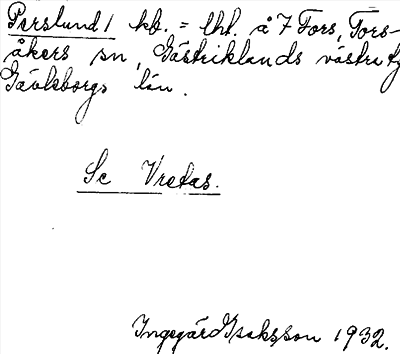 Perslund 1 kb. = lht. å 7 Fors, Tors-
åkers sn, Gästriklands västra tg
Gävleborgs län.
Se Vretas.
Ingegärd Isaksson 1932.